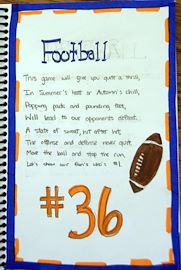 Football
This game will give you quite a thrill,
In Summer's heat or Autumn's chill,
Popping pads and pounding feet,
Will lead to our opponents defeat.
A state of sweat, hit after hit,
The offense and defense never quit.
Move the ball and stop the run,
Let's show our fan's who's #1.
#36